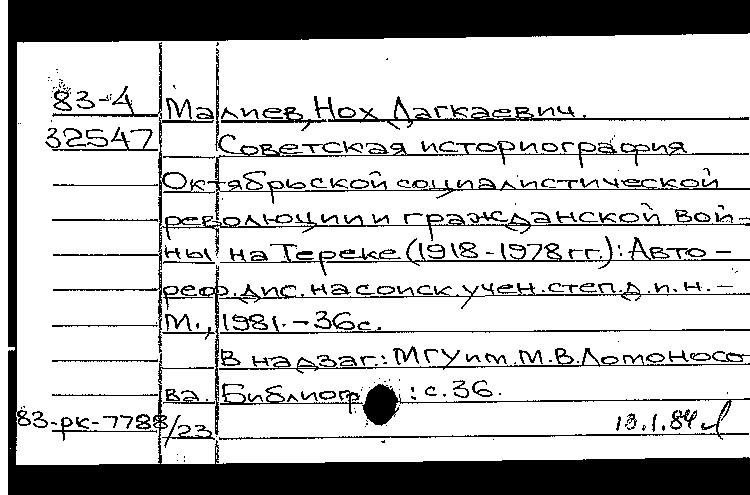 83-4 Малиев, Нох Лагкаевич.
32547 Советская историография
Октябрьской социалистической
революции и гражданской вой-
ны на Тереке (1918-1978 гг.): Авто-
реф. дис. на соиск. учен. степ. д. и. н. -
М., 1981. - 36 с.
В надзаг: МГУ им. М.В. Ломоносо
ва. Библиогр : с. 36.
83-рк-7788/23 13.1.84